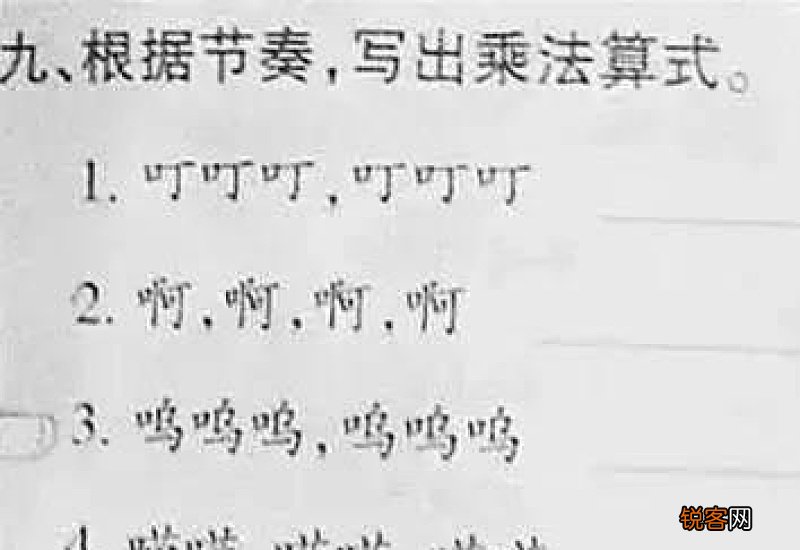 九、根据节奏，写出乘法算式。
1. 叮叮叮，叮叮叮
2. 啊，啊，啊，啊
3. 呜呜呜，呜呜呜
4.
锐客网